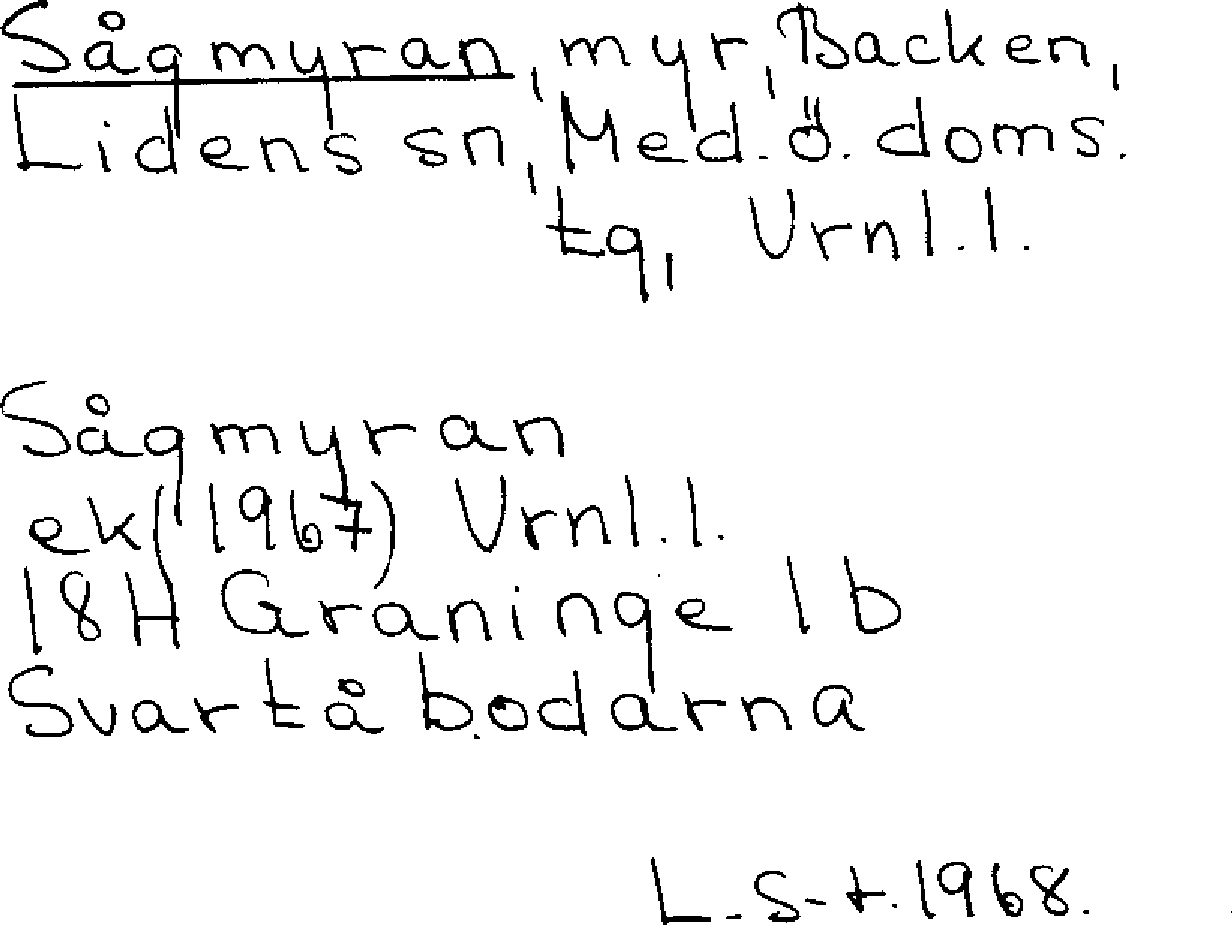 Sågmyran, myr, Backen,
Lidens sn, Med. ö. doms.
tg, Vrnl.l.
Sågmyran
ek (1967) Vrnl.l.
18H Graninge 1b
Svartåbodarna
L.S-t. 1968.